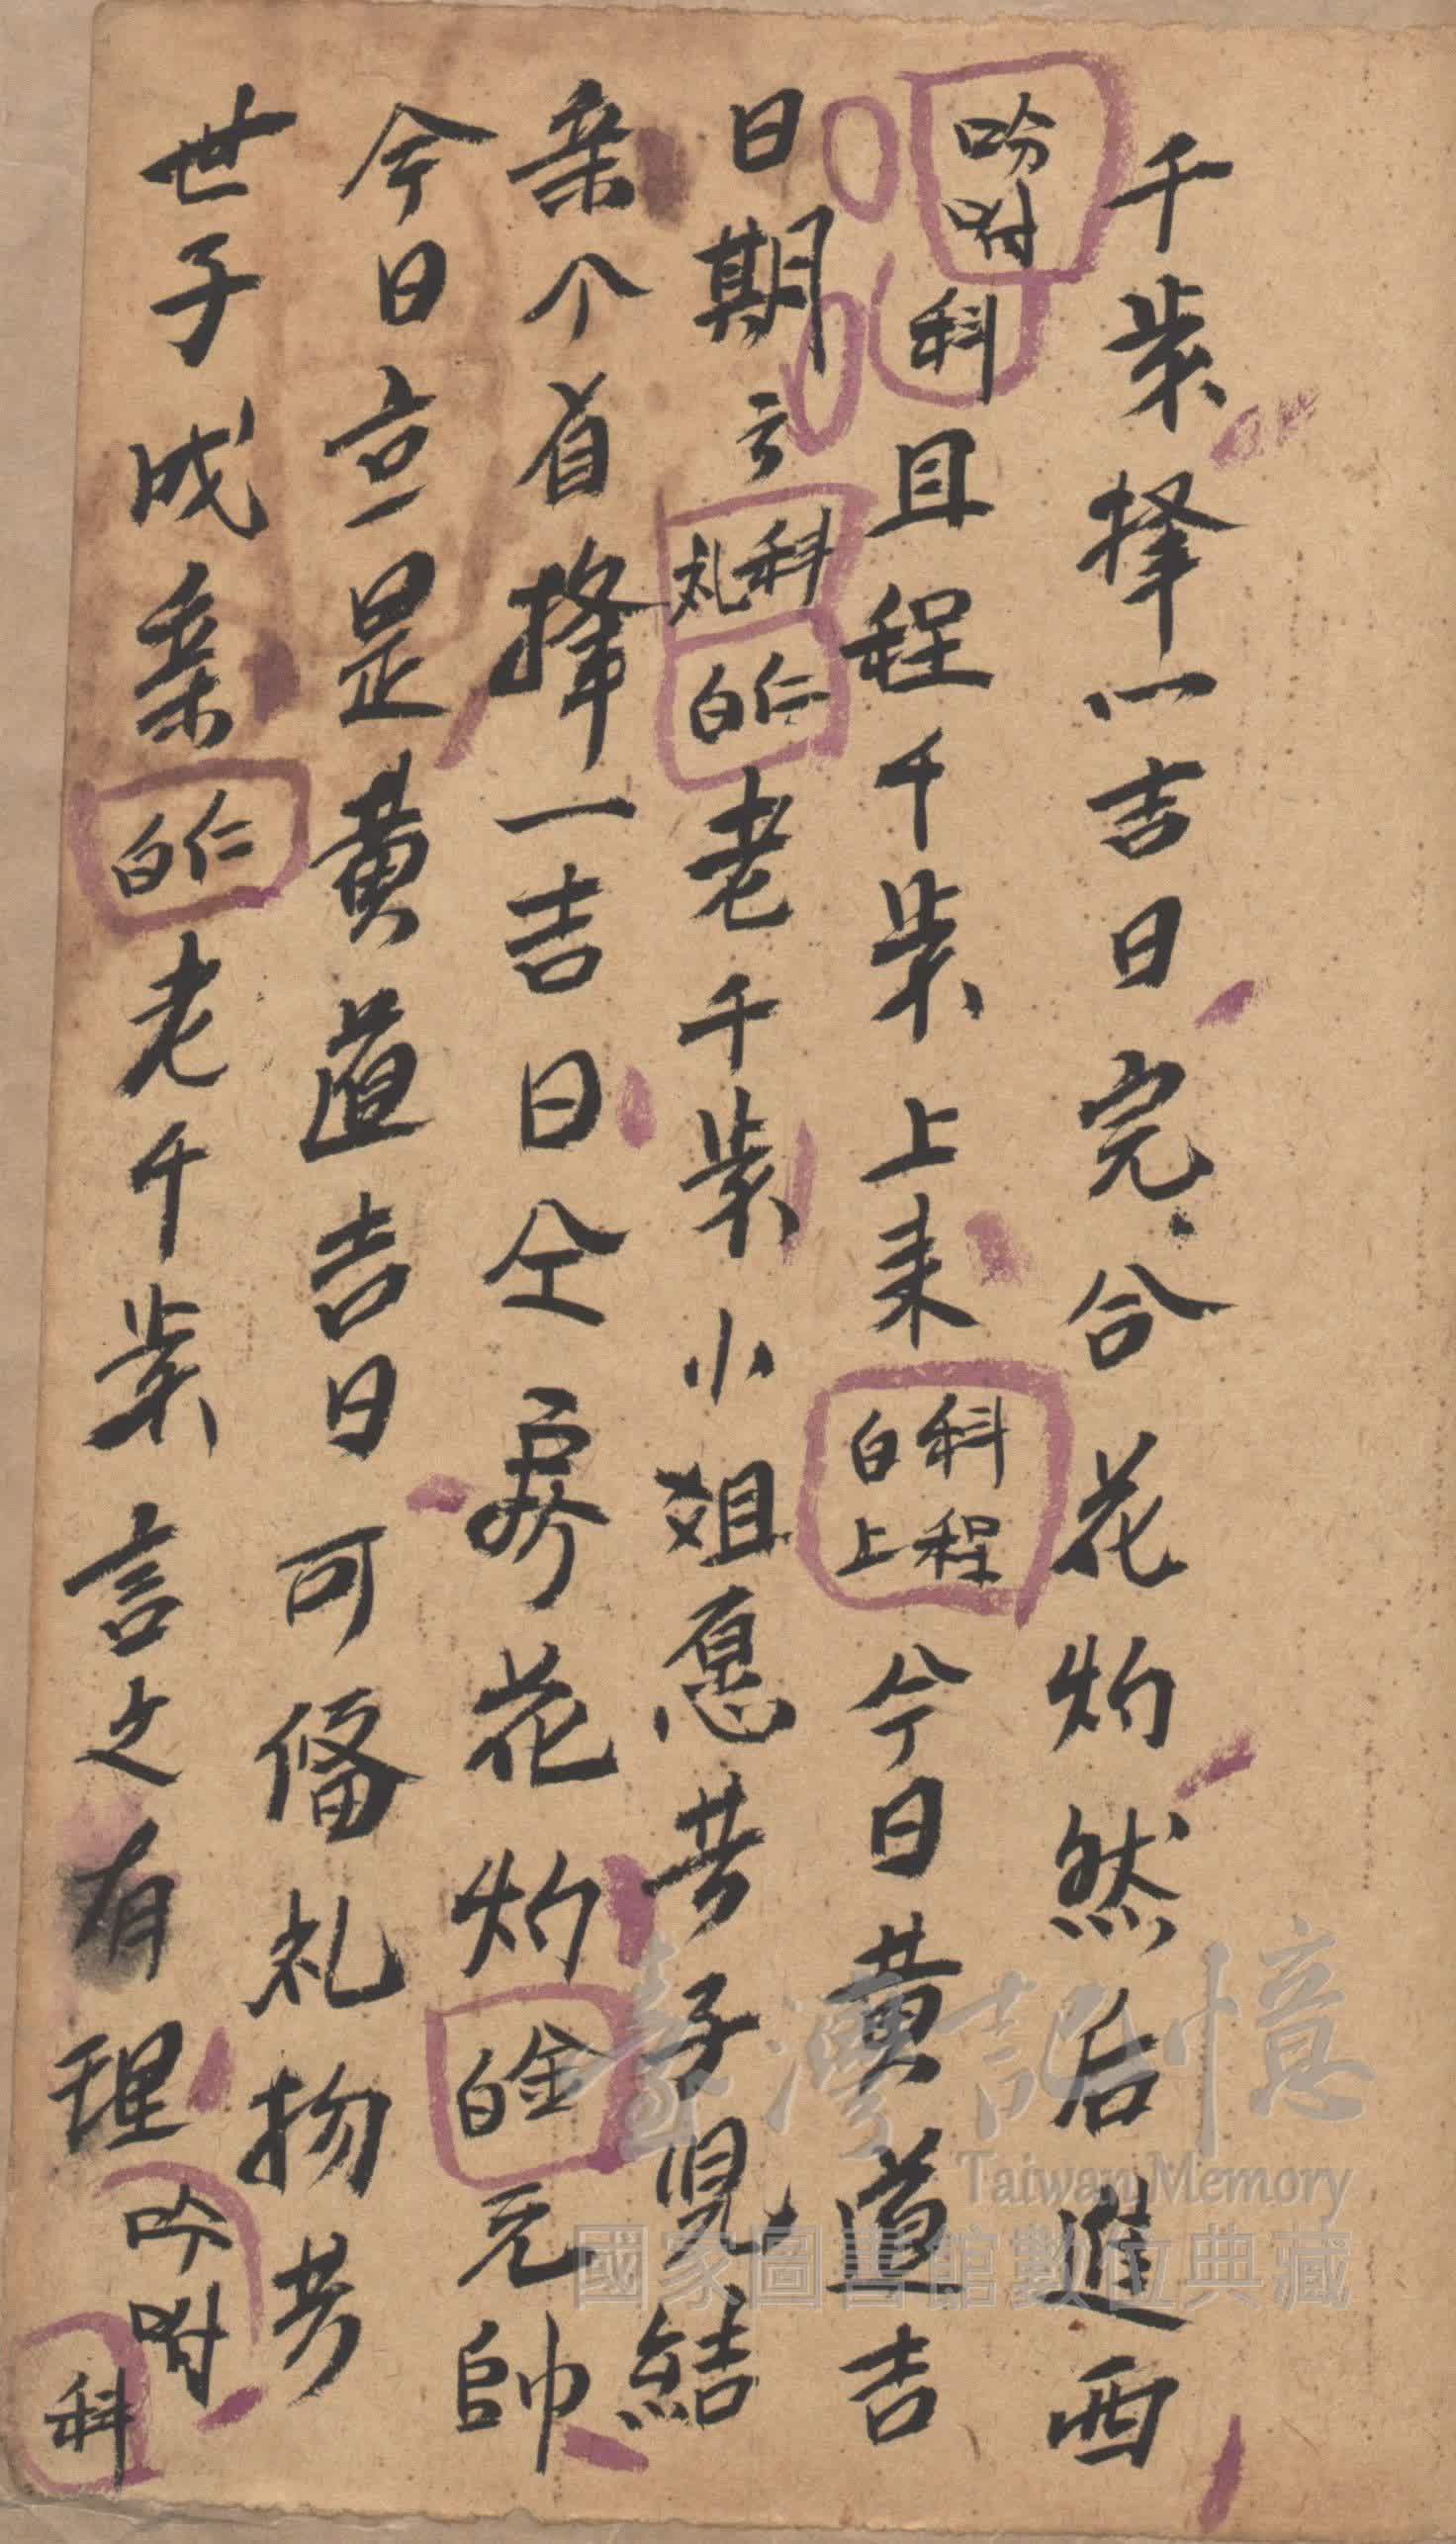 千歲擇一吉日完合花灼然后進西
吩咐科且程千歲上来科程白上今日黄道吉
日期云科礼仁白老千歲小姐愿共子児結
亲个省擇一吉日仝 花灼金白元帥
今日立是黄道吉日可俻礼物共
世子成亲仁白老千歲言之有理吩咐科
臺灣記憶
Taiwan Memory
國家圖書館數位典藏